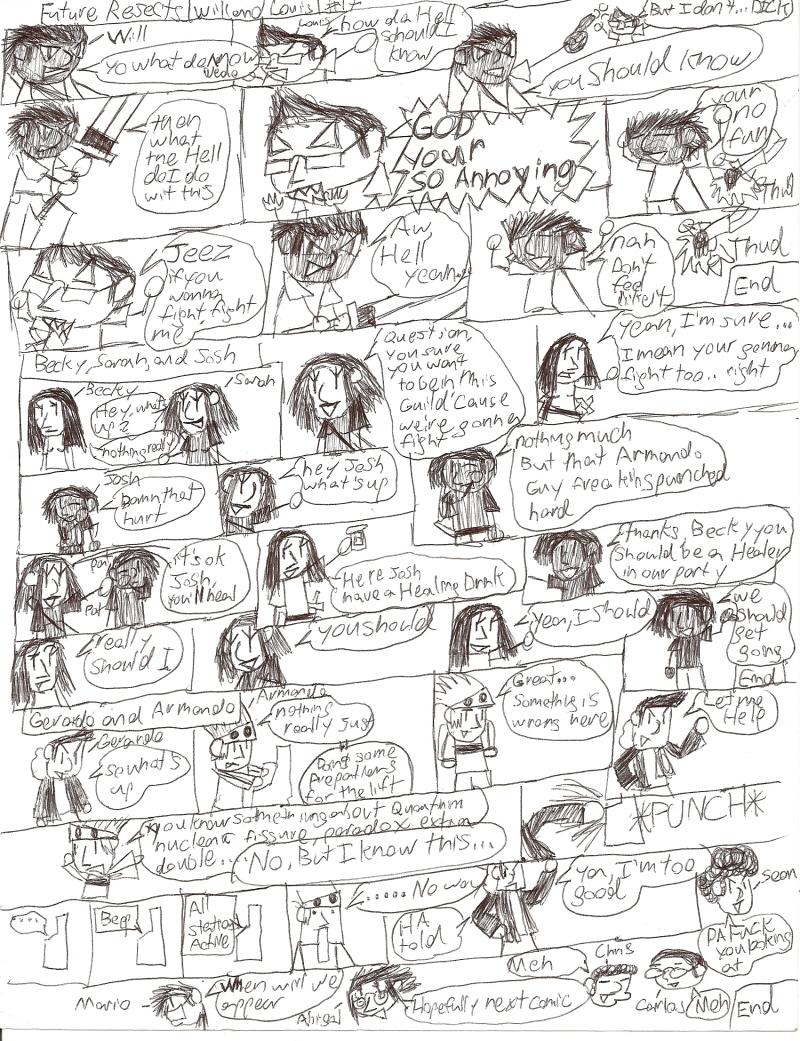 Future Rejects/Will and Louis/#14
Will
yo what da now
Louis
how da Hell
should I
know
But I don't... DICK
you should know
then
what
the Hell
do I do
wit this
GOD
your
SO Annoying
your
no
fun
Thud
Jeez
if you
wanna
fight, fight
me
Aw
Hell
yeah
nah
Don't
feel
like it
Thud
End
Becky, Sarah, and Josh
Becky
Hey, what's
up?
Sarah
nothing really
Question,
you sure
you want
to be in this
Guild 'Cause
we're gonna
fight
Yeah, I'm sure...
I mean your gonna
fight too.. right
Josh
Damn that
hurt
hey Josh
what's up
nothing much
But that Armando
Guy freaking punched
hard
Pat
Pat
it's ok
Josh,
you'll heal
Here Josh
have a Healing Drink
thanks, Becky you
should be a Healer
in our party
really
should I
you should
yeah, I should
we
should
get
going
End
Gerardo and Armando
Gerardo
so what's
up
Armando
nothing
really just
Doing some
preparations
for the lift
Great...
Something is
wrong here
Let me
Help
you know something about Quantum
nuclear fissure, paradox extra
double...
No, But I know this...
*PUNCH*
....
Beep
All
stations
Active
..... No way
HA
told
Ya, I'm too
good
Sean
DA FUCK
you looking
at
Mario
When will we
appear
Abigal
Hopefully next comic
Meh
Chris
Carlos
Meh
End